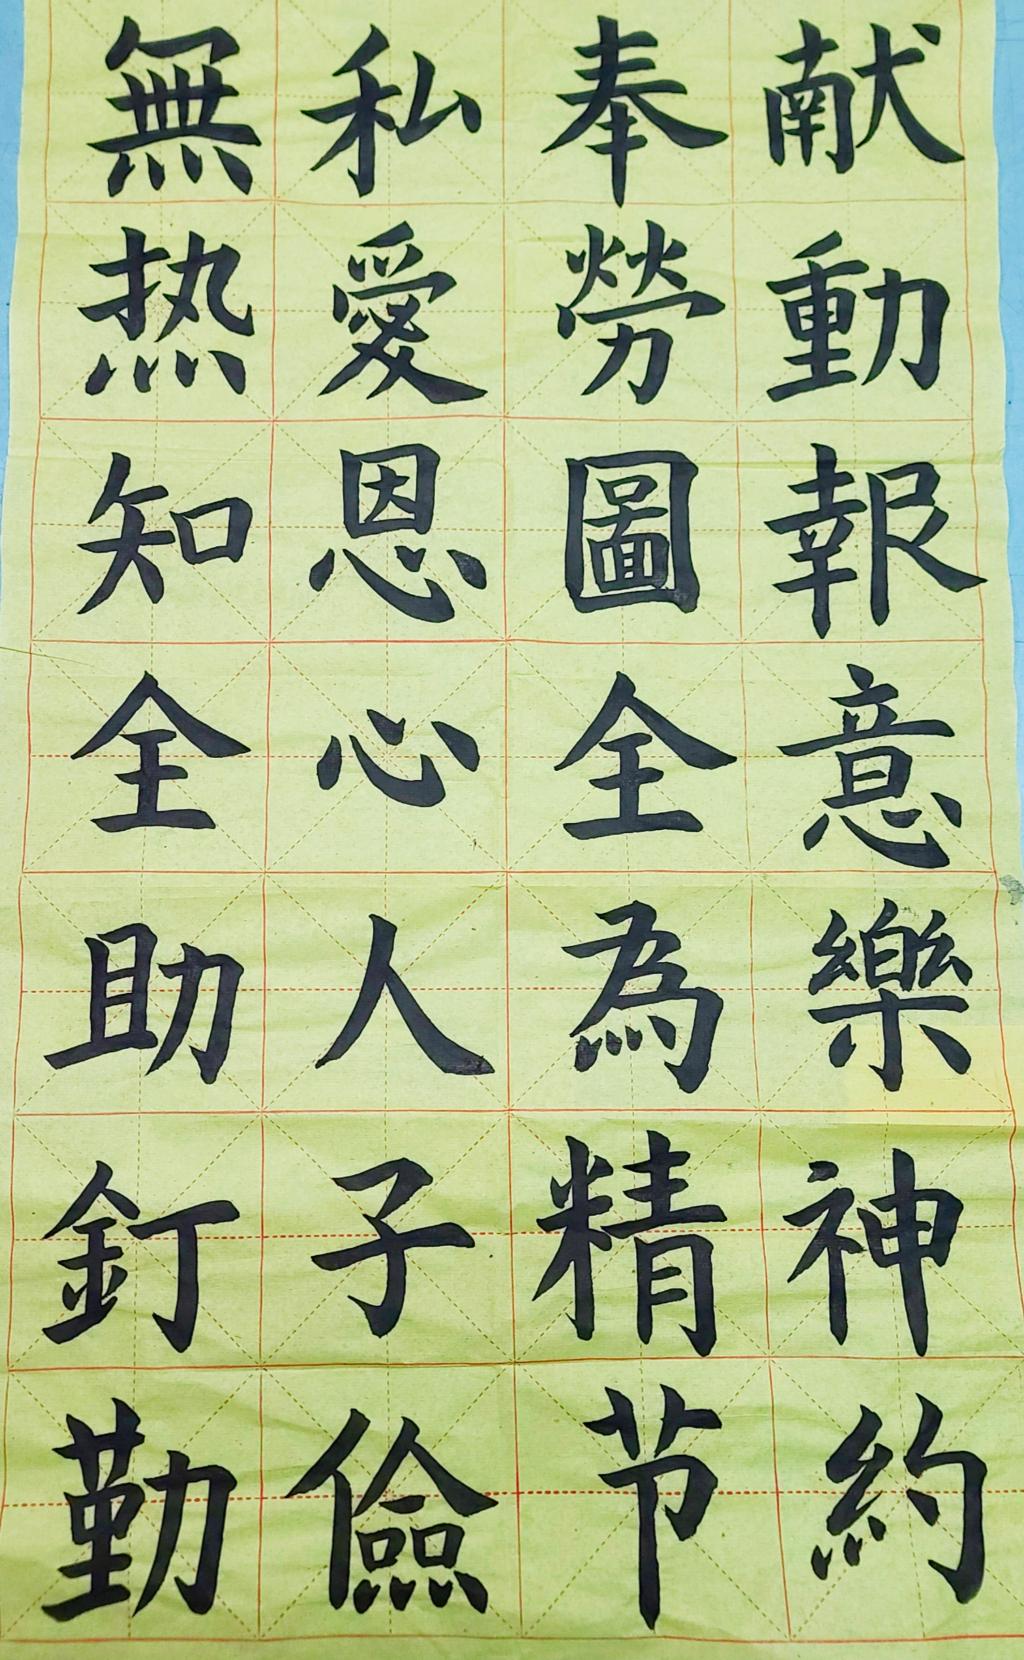 無私奉献
热愛勞動
知恩圖報
全心全意
助人為樂
釘子精神
勤儉节約